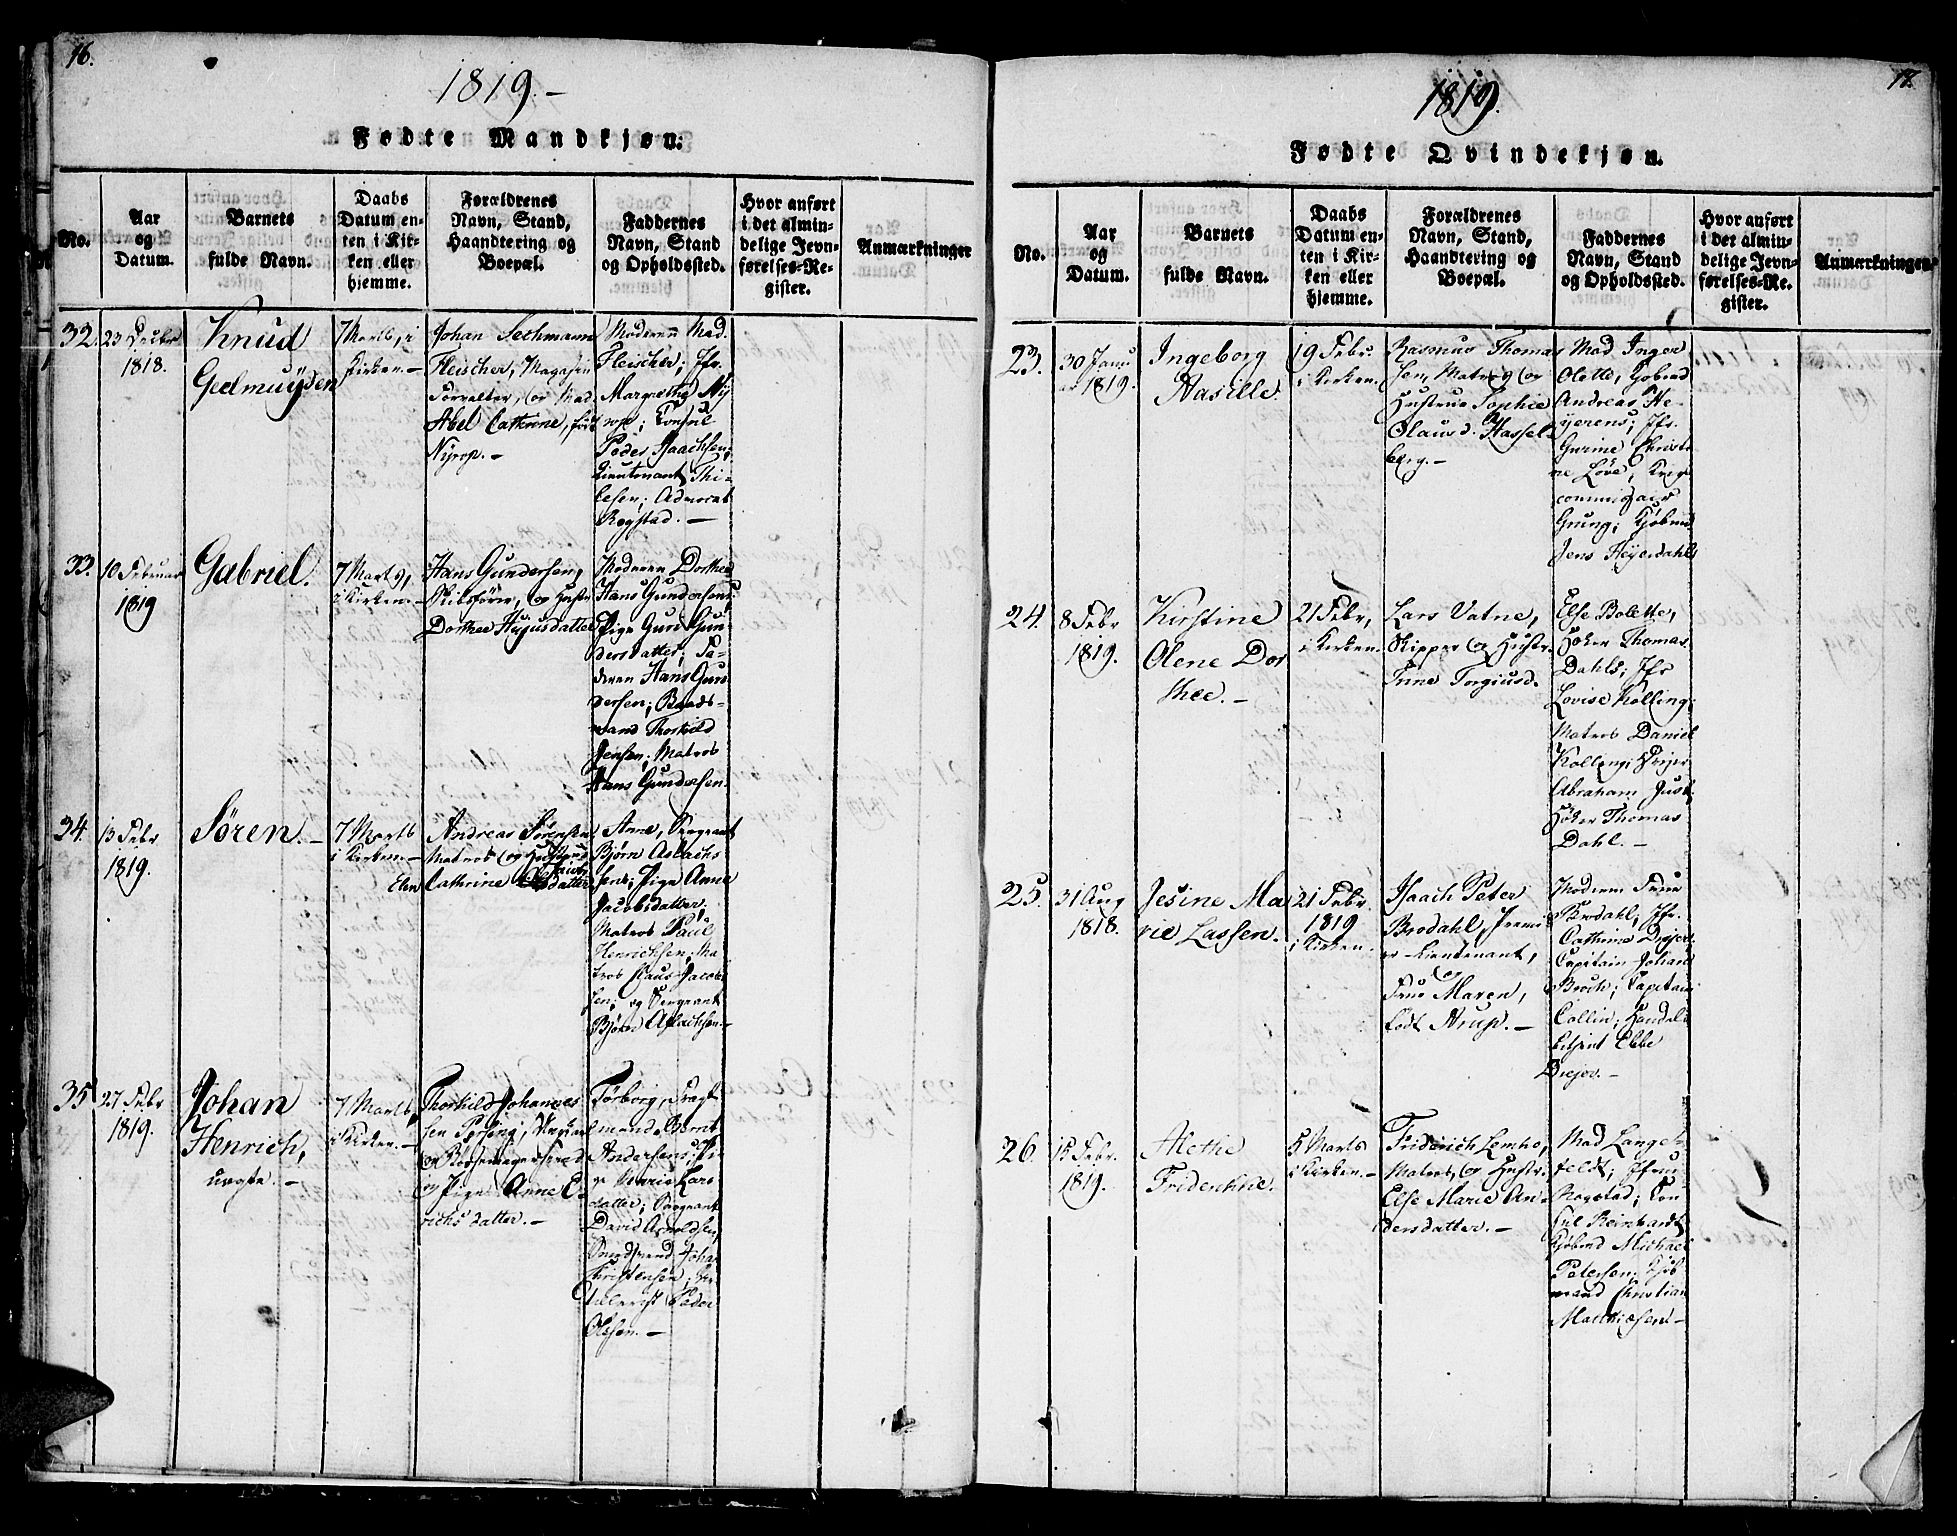 16.
1819.-
Fødte Mandkjøn.
No.
Aar
og
Datum.
Barnets
fulde Navn.
Daabs
Datum en-
ten i Kir-
ken eller
hjemme.
Forældrenes
Navn, Stand,
Haandtering og
Boepæl.
Faddernes
Navn, Stand
og Opholdssted.
Hvor anført
i det almin-
delige Jevn-
førelses-Re-
gister.
Anmærkninger
32.
23 Decbr
1818.
Knud
Geelmuÿden
7 Marts, i
Kirken.-
Johan Sechmann
Fleischer, Magasin
Forvalter, og Mad.
Abel Cathrine, født
Nÿrop.-
Moderen Mad.
Fleischer; Jfr.
Margrethe Nÿ-
rop; Consul
Peder Isaachsen;
Lieutenant Thi-
lesen; Advocat
Rogstad.-
33.
10 Februar
1819
Gabriel.
7 Marts,
i Kirken.-
Hans Gundersen,
Skibsfører, og Hustr
Dorthea
Moderen Dorthea
Hans Gundersens;
Pige Guro Gun-
dersdatter; Fa-
deren Hans Gun
dersen; Baads-
mand Thorkild
Jensen; Matros
Hans Gundersen.
34.
13 Febr
1819.
Søren.-
7 Marts
i Kirken.-
Andreas Sørensen
Matros og Hustrue
Elen Cathrine
Anne, Sergeant
Bjørn Aslachs
sens; Pige Anne
Jacobsdatter,
Matros Paul
Henrichsen, Ma
tros Claus Jacob
sen; og Sergeant
Bjørn Aslachsen.-
35
27 Febr
1819.
Johan
Henrich,
uægte.-
7 Marts,
i Kirken.-
Thorkild Johannes
sen
og Bøssemagersvend
og Pige Anne E-
richsdatter.-
Tørborg, Fragt
mand Bernt
Andersens; Pi
ge Marie Lars
datter; Sergeant
David Arnoldsen,
Johan
Christensen;
Peder
Olsen.-
17.
1819.
Fødte Qvindekjøn.
No.
Aar
og
Datum.
Barnets
fulde Navn.
Daabs
Datum en-
ten i Kir-
ken eller
hjemme.
Forældrenes
Navn, Stand,
Haandtering og
Boepæl.
Faddernes
Navn, Stand
og Opholdssted.
Hvor anført
i det almin-
delige Jevn-
førelses-Re-
gister.
Anmærkninger.
23.
30 Janu
ar 1819.
Ingeborg
Aasille.
19 Febr.
i Kirken.
Rasmus Thomas
sen, Matros og
Hustrue Sophie
Olausd. Hassel-
berg.-
Mad Inger
Olette, Kjøbmd
Andreas He-
ÿerens; Jfr.
Gurine Christi
ne Løve; Krigs
commisair
Grung; Kjøbmd
Jens Heÿerdahl
24.
8 Febr
1819.
Kirstine
Olene Dor
thee.-
21 Febr,
i Kirken.
Lars Vatne,
Skipper og Hustr.
Trine Torgiusd.
Else Bolette,
Høker Thomas
Dahls; Jfr
Lovise Kølling;
Matros Daniel
Kølling;
Abraham Just,
Høker Thomas
Dahl.-
25.
31 Aug
1818.
Jesine Ma
rie Lassen.
21 Febr.
1819
i Kirken.
Isaach Peter
Brodahl, Premi
er Lieutenant,
og
Frue Maren,
født Arup.-
Moderen Frue
Brodahl, Jfr.
Cathrine Drejer
Capitain Johan
Broch; Capitain
Collin; Handels
betjent Ebbe
Drejer.-
26.
15 Febr.
1819.
Alethe
Friderikke.
5 Marts
i Kirken.-
Friderich Lemho,
Matros, og Hustr.
Else Marie An-
dersdatter.-
Mad Lange
feldt; Jfru
Rogstad; Con
sul Reinhardt
Kjøbmd Michael
Petersen; Kjøb
mand Christian
Matthiesen.-